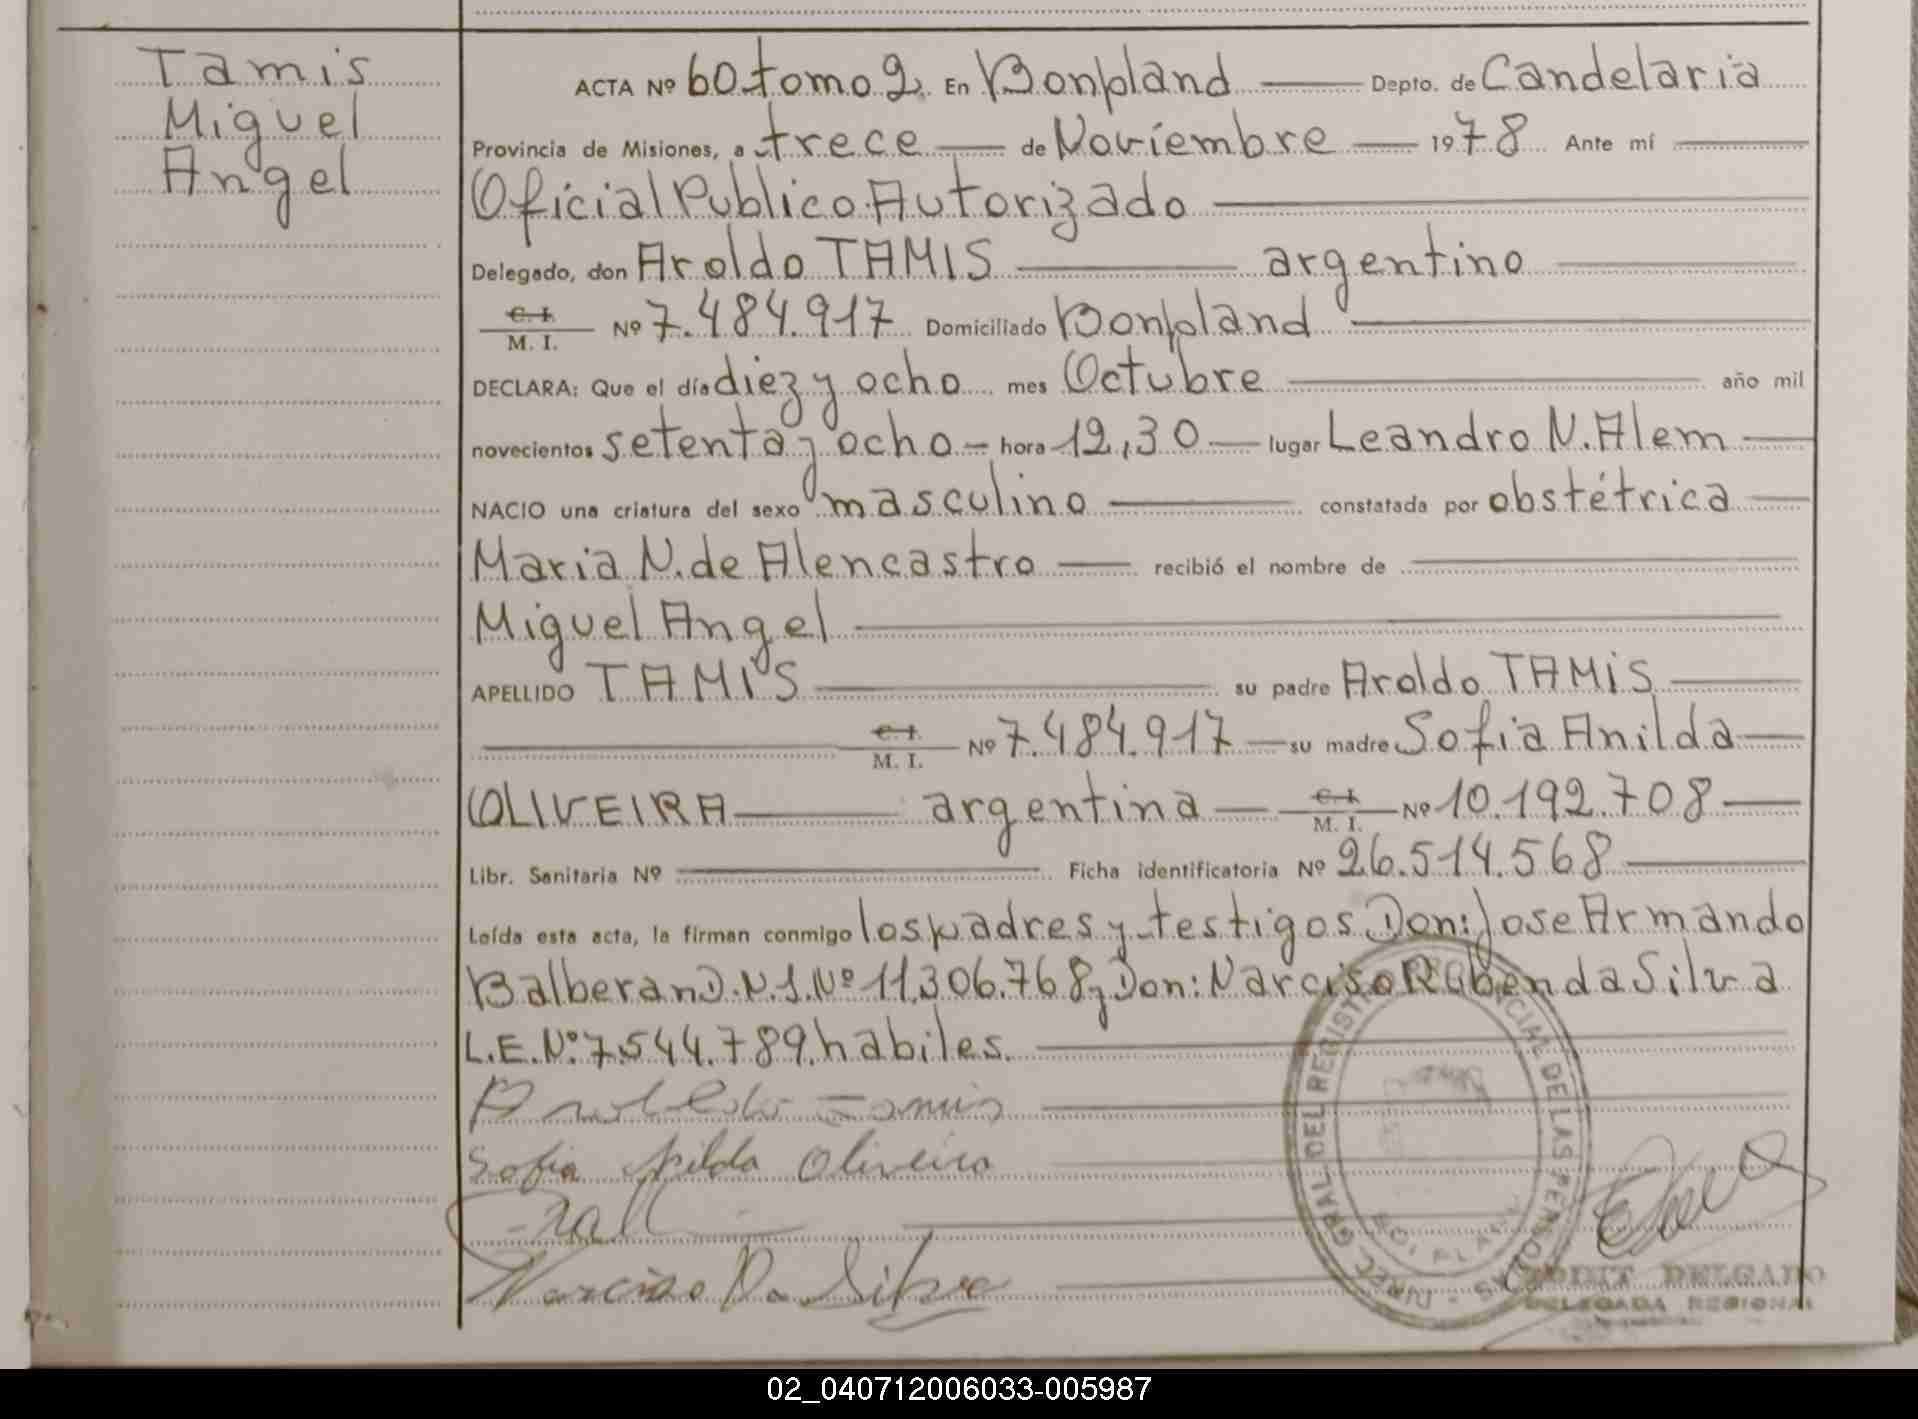 Tamis
Miguel
Angel
ACTA Nº 60 tomo 2 En Bonpland Depto. de Candelaria
Provincia de Misiones, a trece de Noviembre 1978 Ante mí
Oficial Publico Autorizado
Delegado, don Aroldo TAMIS argentino
C. I.
M. I. Nº 7.484.917 Domiciliado Bonpland
DECLARA: Que el día diez y ocho mes Octubre año mil
novecientos setenta y ocho - hora 12,30 lugar Leandro N. Alem
NACIO una criatura del sexo masculino constatada por obstétrica
Maria N. de Alencastro recibió el nombre de
Miguel Angel
APELLIDO TAMIS su padre Aroldo TAMIS
C. I.
M. I. Nº 7.484.917 su madre Sofia Anilda
OLIVEIRA argentina C. I.
M. I. Nº 10.192.708
Libr. Sanitaria Nº Ficha identificatoria Nº 26.514.568
Leída esta acta, la firman conmigo los padres y testigos Don: Jose Armando
Balberan D.N.I. Nº 11.306.768 y Don: Narciso Ruben da Silva
L.E. Nº 7.544.789. habiles.
Aroldo Tamis
Sofia Anilda Oliveira
Narciso Da Silva
DIREC. GRAL. DEL REGISTRO DE LAS PERSONAS
DELGADO
DELEGADA REGIONAL
02_040712006033-005987